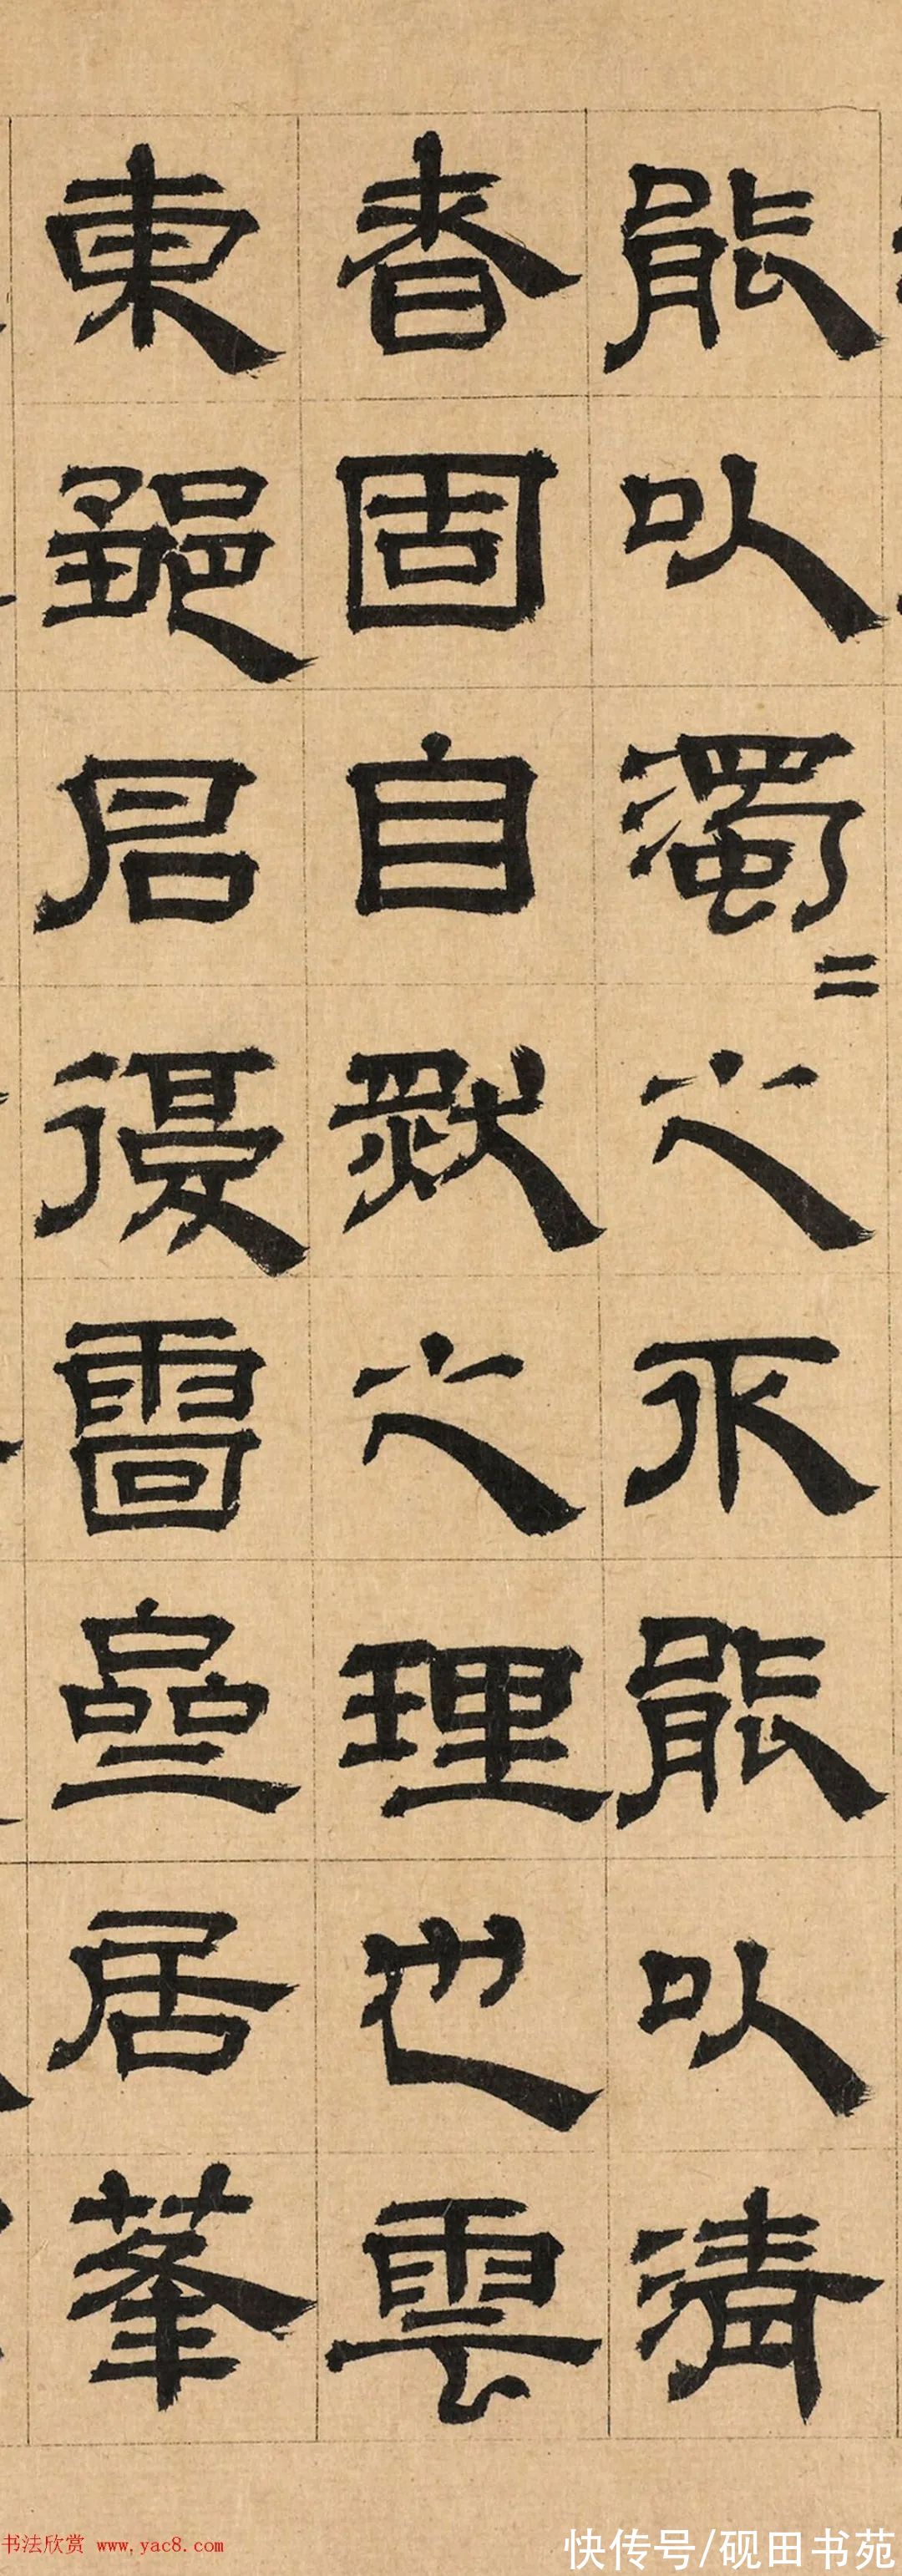 能以濁〻之不能以清
者固自然之理也雲
東郵復雷居
书法欣赏 www.yac8.com
快传号/砚田书苑